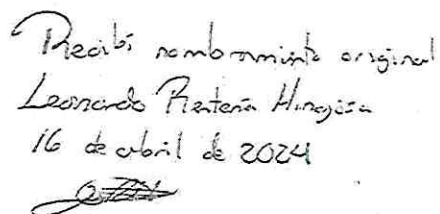 Recibí nombramiento original
Leonardo Rentería Hinojosa
16 de abril de 2024